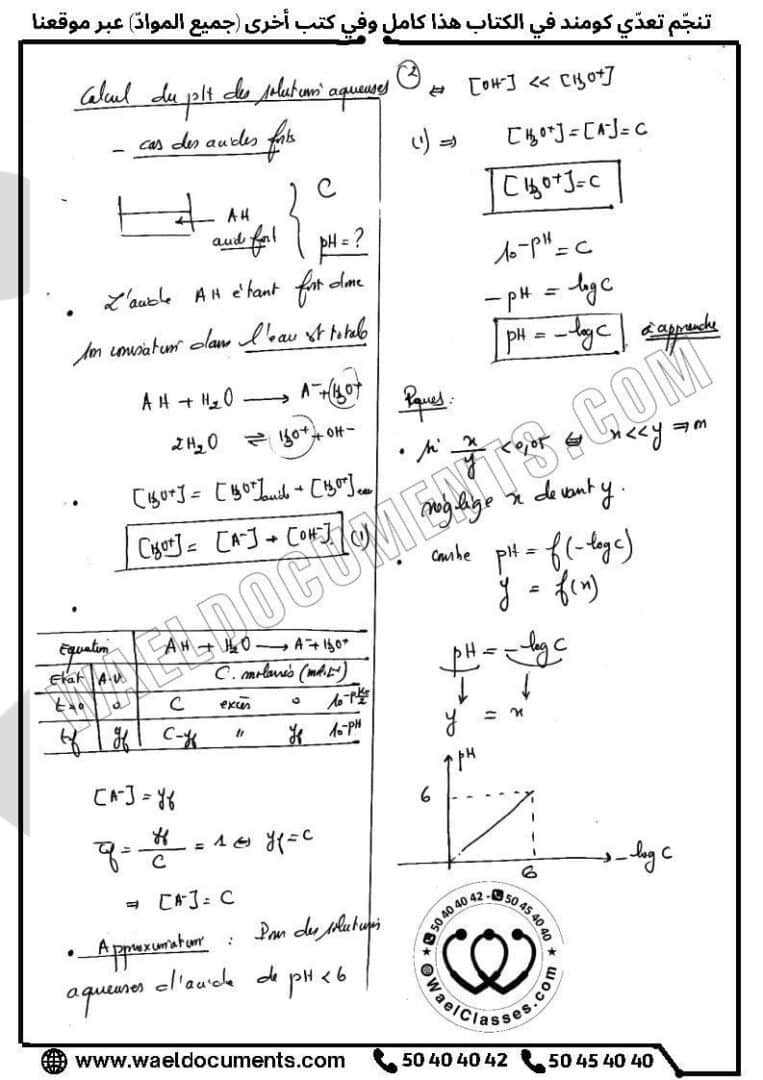 تنجّم تعدّي كومند في الكتاب هذا كامل وفي كتب أخرى (جميع الموادّ) عبر موقعنا
Calcul du pH des solutions aqueuses
- cas des acides forts
AH
acide fort
C
pH = ?
• L'acide AH étant fort donc
son ionisation dans l'eau est totale
AH + H2O ⟶ A⁻ + H3O⁺
2H2O ⇌ H3O⁺ + OH⁻
• [H3O⁺] = [H3O⁺]acide + [H3O⁺]eau
[H3O⁺] = [A⁻] + [OH⁻] (1)
•
Equation AH + H2O ⟶ A⁻ + H3O⁺
Etat A.V C. molaires (mol.L⁻¹)
t=0 0 C excès 0 10^-pKe/2
tf yf C-yf " yf 10^-pH
[A⁻] = yf
τf = yf / C = 1 ⇔ yf = C
⇒ [A⁻] = C
• Approximation : Pour des solutions
aqueuses d'acide de pH < 6
(2) ⇔ [OH⁻] << [H3O⁺]
(1) ⇒ [H3O⁺] = [A⁻] = C
[H3O⁺] = C
10^-pH = C
-pH = log C
pH = -log C à apprendre
Rques :
• si x/y < 0,05 ⇔ x << y ⇒ on
néglige x devant y.
• courbe pH = f(-log C)
y = f(x)
pH = -log C
y = x
pH
6
6
-log C
50 40 40 42 - 50 45 40 40
WaelClasses.com
WAELDOCUMENTS.COM
www.waeldocuments.com 50 40 40 42 50 45 40 40